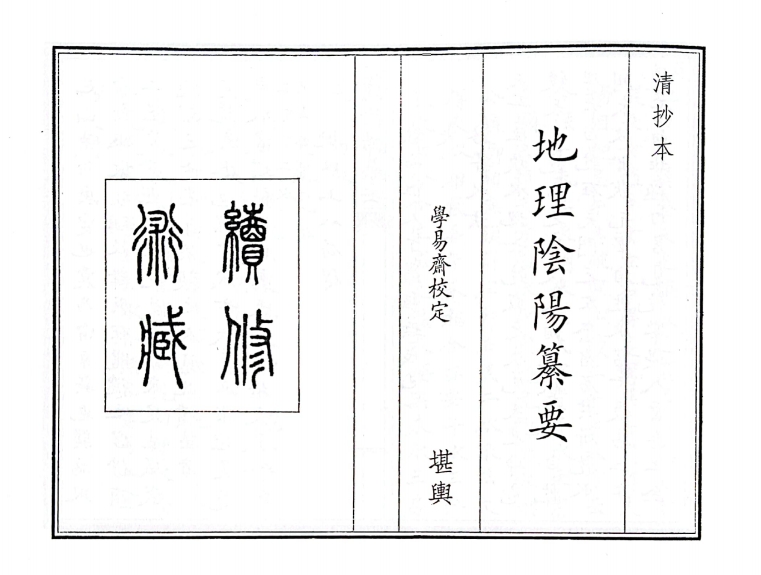 清抄本
地理陰陽纂要
學易齋校定
堪輿
續修
術藏